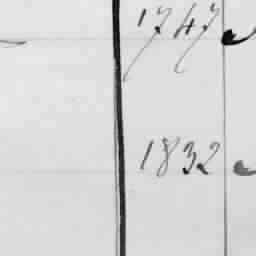 1747
1832